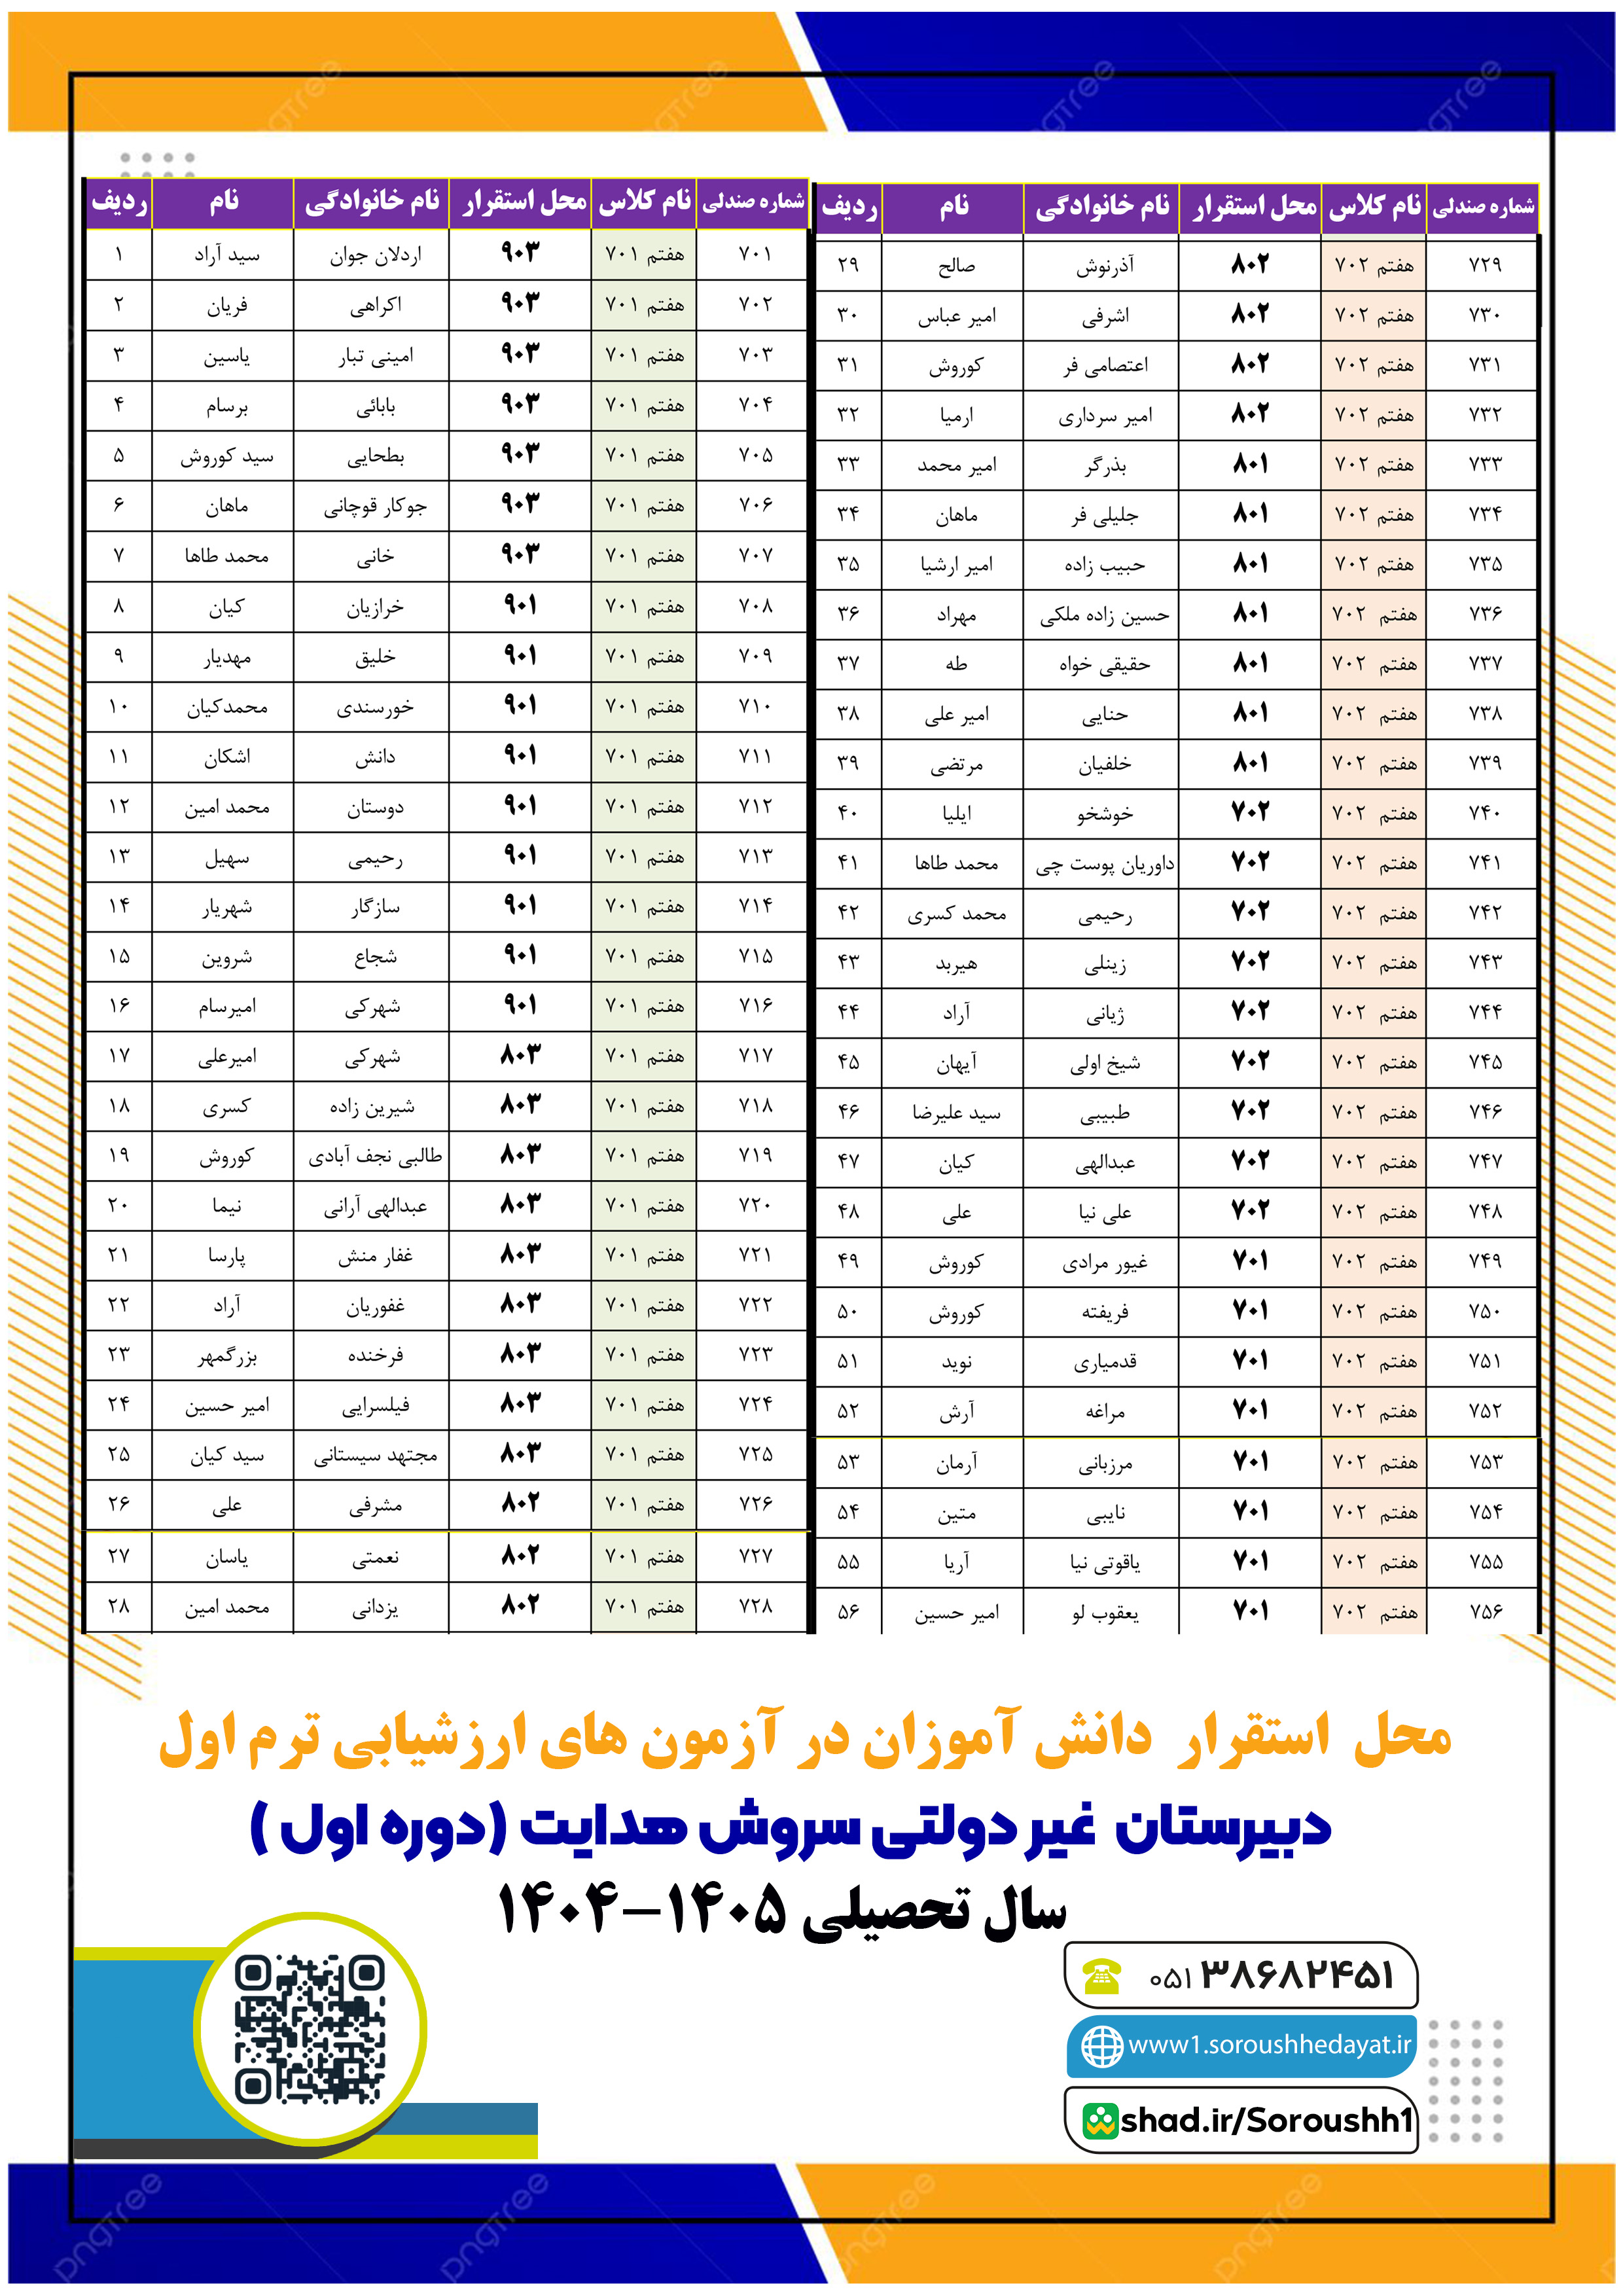 ردیف نام نام خانوادگی محل استقرار نام کلاس شماره صندلی
۱ سید آراد اردلان جوان ۹۰۳ هفتم ۷۰۱ ۷۰۱
۲ فریان اکراهی ۹۰۳ هفتم ۷۰۱ ۷۰۲
۳ یاسین امینی تبار ۹۰۳ هفتم ۷۰۱ ۷۰۳
۴ برسام بابائی ۹۰۳ هفتم ۷۰۱ ۷۰۴
۵ سید کوروش بطحایی ۹۰۳ هفتم ۷۰۱ ۷۰۵
۶ ماهان جوکار قوچانی ۹۰۳ هفتم ۷۰۱ ۷۰۶
۷ محمد طاها خانی ۹۰۳ هفتم ۷۰۱ ۷۰۷
۸ کیان خرازیان ۹۰۱ هفتم ۷۰۱ ۷۰۸
۹ مهدیار خلیق ۹۰۱ هفتم ۷۰۱ ۷۰۹
۱۰ محمدکیان خورسندی ۹۰۱ هفتم ۷۰۱ ۷۱۰
۱۱ اشکان دانش ۹۰۱ هفتم ۷۰۱ ۷۱۱
۱۲ محمد امین دوستان ۹۰۱ هفتم ۷۰۱ ۷۱۲
۱۳ سهیل رحیمی ۹۰۱ هفتم ۷۰۱ ۷۱۳
۱۴ شهریار سازگار ۹۰۱ هفتم ۷۰۱ ۷۱۴
۱۵ شروین شجاع ۹۰۱ هفتم ۷۰۱ ۷۱۵
۱۶ امیرسام شهرکی ۹۰۱ هفتم ۷۰۱ ۷۱۶
۱۷ امیرعلی شهرکی ۸۰۳ هفتم ۷۰۱ ۷۱۷
۱۸ کسری شیرین زاده ۸۰۳ هفتم ۷۰۱ ۷۱۸
۱۹ کوروش طالبی نجف آبادی ۸۰۳ هفتم ۷۰۱ ۷۱۹
۲۰ نیما عبدالهی آرانی ۸۰۳ هفتم ۷۰۱ ۷۲۰
۲۱ پارسا غفار منش ۸۰۳ هفتم ۷۰۱ ۷۲۱
۲۲ آراد غفوریان ۸۰۳ هفتم ۷۰۱ ۷۲۲
۲۳ بزرگمهر فرخنده ۸۰۳ هفتم ۷۰۱ ۷۲۳
۲۴ امیر حسین فیلسرایی ۸۰۳ هفتم ۷۰۱ ۷۲۴
۲۵ سید کیان مجتهد سیستانی ۸۰۳ هفتم ۷۰۱ ۷۲۵
۲۶ علی مشرفی ۸۰۲ هفتم ۷۰۱ ۷۲۶
۲۷ یاسان نعمتی ۸۰۲ هفتم ۷۰۱ ۷۲۷
۲۸ محمد امین یزدانی ۸۰۲ هفتم ۷۰۱ ۷۲۸
ردیف نام نام خانوادگی محل استقرار نام کلاس شماره صندلی
۲۹ صالح آذرنوش ۸۰۲ هفتم ۷۰۲ ۷۲۹
۳۰ امیر عباس اشرفی ۸۰۲ هفتم ۷۰۲ ۷۳۰
۳۱ کوروش اعتصامی فر ۸۰۲ هفتم ۷۰۲ ۷۳۱
۳۲ ارمیا امیر سرداری ۸۰۲ هفتم ۷۰۲ ۷۳۲
۳۳ امیر محمد بذرگر ۸۰۱ هفتم ۷۰۲ ۷۳۳
۳۴ ماهان جلیلی فر ۸۰۱ هفتم ۷۰۲ ۷۳۴
۳۵ امیر ارشیا حبیب زاده ۸۰۱ هفتم ۷۰۲ ۷۳۵
۳۶ مهراد حسین زاده ملکی ۸۰۱ هفتم ۷۰۲ ۷۳۶
۳۷ طه حقیقی خواه ۸۰۱ هفتم ۷۰۲ ۷۳۷
۳۸ امیر علی حنایی ۸۰۱ هفتم ۷۰۲ ۷۳۸
۳۹ مرتضی خلفیان ۸۰۱ هفتم ۷۰۲ ۷۳۹
۴۰ ایلیا خوشخو ۷۰۲ هفتم ۷۰۲ ۷۴۰
۴۱ محمد طاها داوریان پوست چی ۷۰۲ هفتم ۷۰۲ ۷۴۱
۴۲ محمد کسری رحیمی ۷۰۲ هفتم ۷۰۲ ۷۴۲
۴۳ هیربد زینلی ۷۰۲ هفتم ۷۰۲ ۷۴۳
۴۴ آراد ژیانی ۷۰۲ هفتم ۷۰۲ ۷۴۴
۴۵ آیهان شیخ اولی ۷۰۲ هفتم ۷۰۲ ۷۴۵
۴۶ سید علیرضا طبیبی ۷۰۲ هفتم ۷۰۲ ۷۴۶
۴۷ کیان عبدالهی ۷۰۲ هفتم ۷۰۲ ۷۴۷
۴۸ علی علی نیا ۷۰۲ هفتم ۷۰۲ ۷۴۸
۴۹ کوروش غیور مرادی ۷۰۱ هفتم ۷۰۲ ۷۴۹
۵۰ کوروش فریفته ۷۰۱ هفتم ۷۰۲ ۷۵۰
۵۱ نوید قدمیاری ۷۰۱ هفتم ۷۰۲ ۷۵۱
۵۲ آرش مراغه ۷۰۱ هفتم ۷۰۲ ۷۵۲
۵۳ آرمان مرزبانی ۷۰۱ هفتم ۷۰۲ ۷۵۳
۵۴ متین نایبی ۷۰۱ هفتم ۷۰۲ ۷۵۴
۵۵ آریا یاقوتی نیا ۷۰۱ هفتم ۷۰۲ ۷۵۵
۵۶ امیر حسین یعقوب لو ۷۰۱ هفتم ۷۰۲ ۷۵۶
محل استقرار دانش آموزان در آزمون های ارزشیابی ترم اول
دبیرستان غیر دولتی سروش هدایت (دوره اول )
سال تحصیلی ۱۴۰۵-۱۴۰۴
۰۵۱ ۳۸۶۸۲۴۵۱
www1.soroushhedayat.ir
shad.ir/Soroushh1